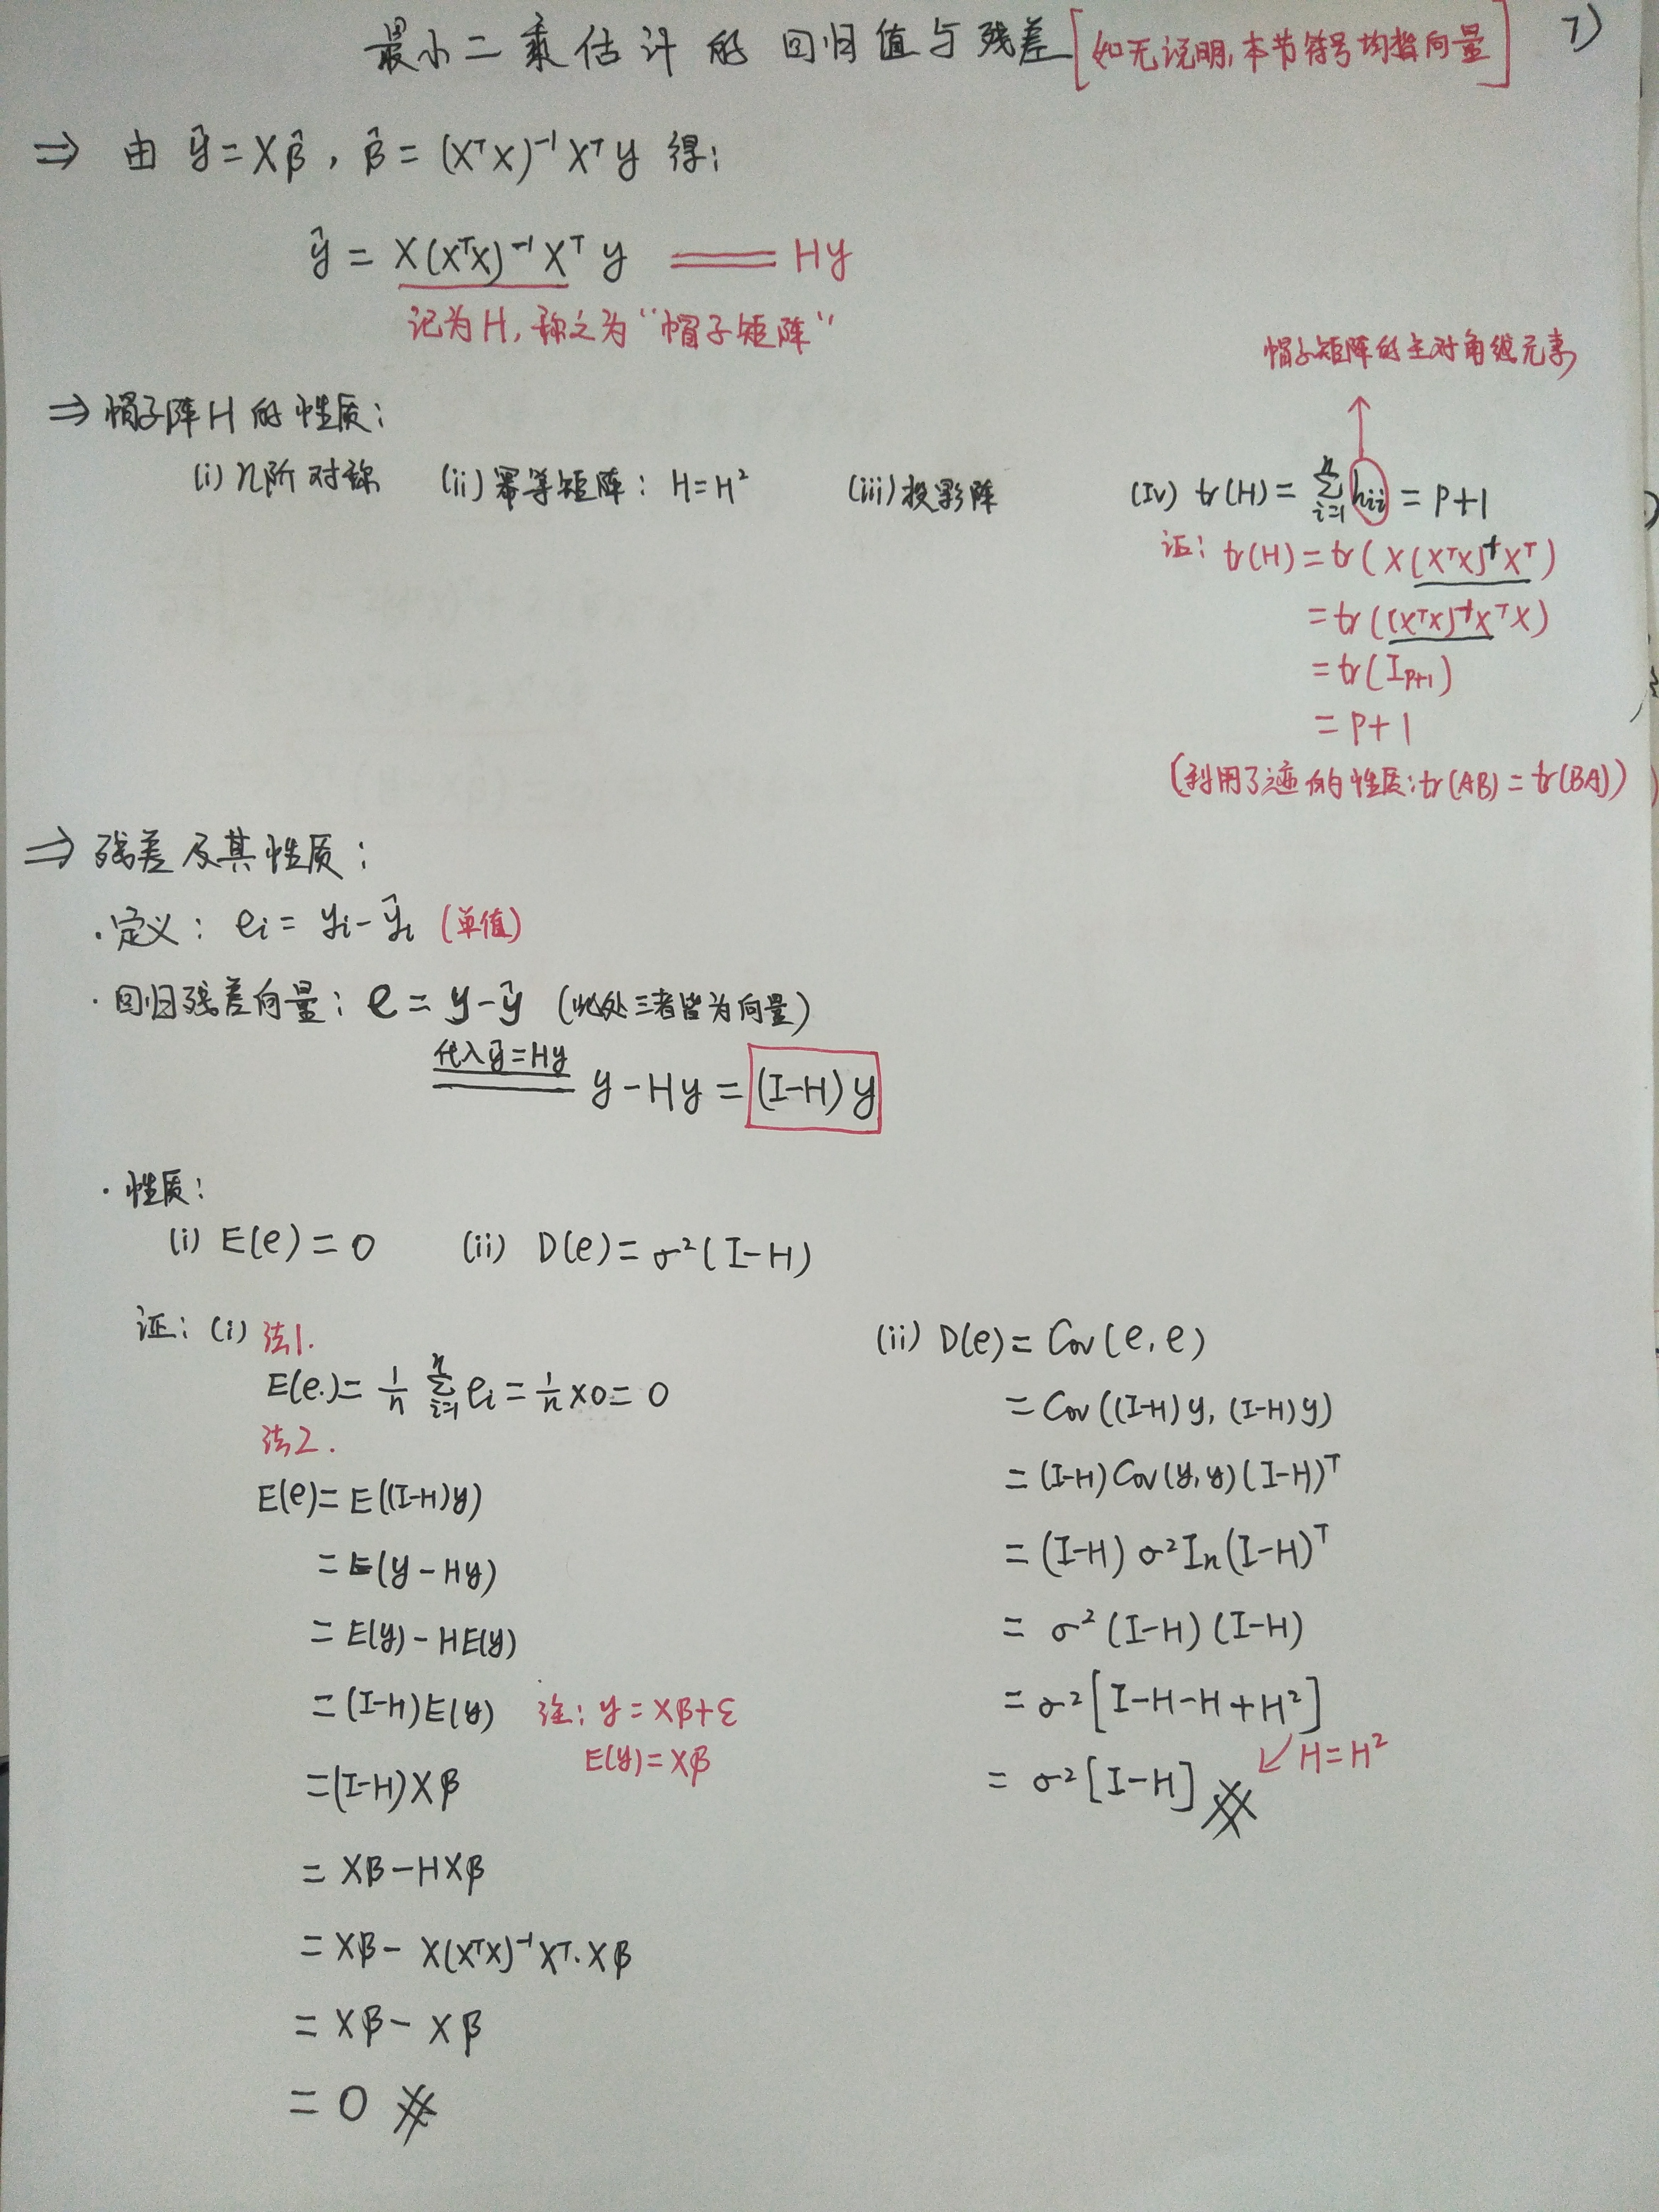 最小二乘估计的回归值与残差[如无说明,本节符号均指向量] 7)
⇒ 由 ŷ=Xβ̂, β̂=(XᵀX)⁻¹Xᵀy 得:
ŷ = X(XᵀX)⁻¹Xᵀ y ═══ Hy
记为H,称之为“帽子矩阵”
帽子矩阵的主对角线元素
⇒ 帽子阵H的性质:
(i) n阶对称 (ii) 幂等矩阵: H=H² (iii) 投影阵 (Iv) tr(H)=∑ⁿᵢ₌₁ hᵢᵢ = P+1
证: tr(H)=tr(X(XᵀX)⁻¹Xᵀ)
=tr((XᵀX)⁻¹XᵀX)
=tr(I_{P+1})
=P+1
(利用了迹的性质:tr(AB)=tr(BA))
⇒ 残差及其性质:
·定义: eᵢ=yᵢ-ŷᵢ (单值)
·回归残差向量: e=y-ŷ (此处三者皆为向量)
代入ŷ=Hy
═══ y-Hy=(I-H)y
·性质:
(i) E(e)=0 (ii) D(e)=σ²(I-H)
证: (i) 法1.
E(e)=1/n ∑ⁿᵢ₌₁ eᵢ=1/n×0=0
法2.
E(e)=E((I-H)y)
=E(y-Hy)
=E(y)-HE(y)
=(I-H)E(y) 注: y=Xβ+ε
E(y)=Xβ
=(I-H)Xβ
=Xβ-HXβ
=Xβ-X(XᵀX)⁻¹Xᵀ·Xβ
=Xβ-Xβ
=0 #
(ii) D(e)=Cov(e,e)
=Cov((I-H)y,(I-H)y)
=(I-H)Cov(y,y)(I-H)ᵀ
=(I-H)σ²Iₙ(I-H)ᵀ
=σ²(I-H)(I-H)
=σ²[I-H-H+H²]
↙H=H²
=σ²[I-H] #